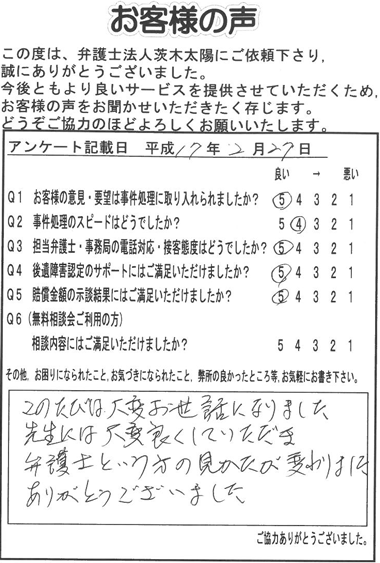 お客様の声
この度は、弁護士法人茨木太陽にご依頼下さり,
誠にありがとうございました。
今後ともより良いサービスを提供させていただくため,
お客様の声をお聞かせいただきたく存じます。
どうぞご協力のほどよろしくお願いいたします。
アンケート記載日 平成17年2月27日
良い → 悪い
Q1 お客様の意見・要望は事件処理に取り入れられましたか? 5 4 3 2 1
Q2 事件処理のスピードはどうでしたか? 5 4 3 2 1
Q3 担当弁護士・事務局の電話対応・接客態度はどうでしたか? 5 4 3 2 1
Q4 後遺障害認定のサポートにはご満足いただけましたか? 5 4 3 2 1
Q5 賠償金額の示談結果にはご満足いただけましたか? 5 4 3 2 1
Q6 (無料相談会ご利用の方)
相談内容にはご満足いただけましたか? 5 4 3 2 1
その他, お困りになられたこと,お気づきになられたこと, 弊所の良かったところ等,お気軽にお書き下さい。
このたびは大変お世話になりました
先生には大変良くしていただき
弁護士という方の見かたが変わりました
ありがとうございました
ご協力ありがとうございました。